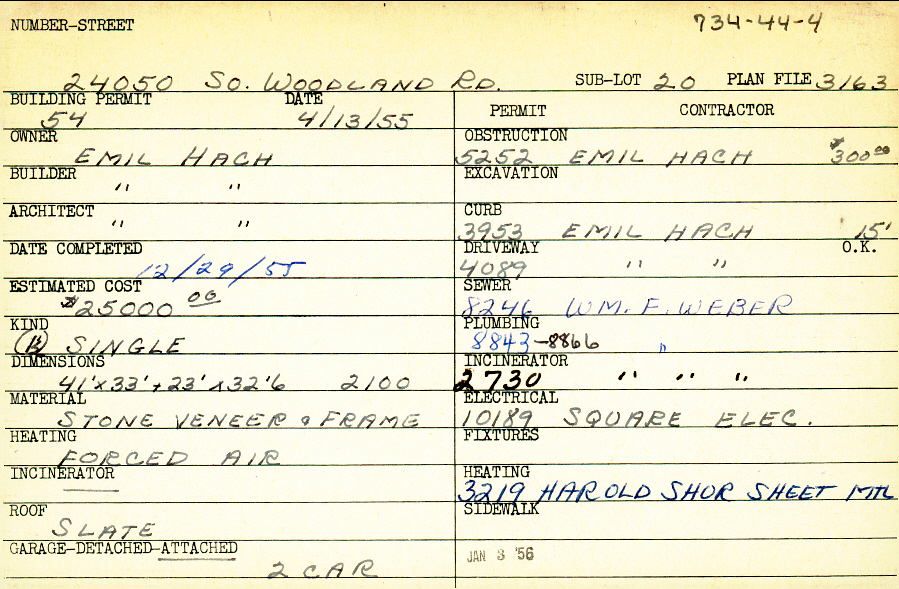 NUMBER-STREET
734-44-4
24050 SO. WOODLAND RD.
SUB-LOT 20 PLAN FILE 3163
BUILDING PERMIT DATE
54 4/13/55
OWNER
EMIL HACH
BUILDER
" "
ARCHITECT
" "
DATE COMPLETED
12/29/55
ESTIMATED COST
$25000 00
KIND
(B) SINGLE
DIMENSIONS
41'x33'+23'x32'6 2100
MATERIAL
STONE VENEER & FRAME
HEATING
FORCED AIR
INCINERATOR
ROOF
SLATE
GARAGE-DETACHED-ATTACHED
2 CAR
PERMIT CONTRACTOR
OBSTRUCTION
5252 EMIL HACH $300 00
EXCAVATION
CURB
3953 EMIL HACH 15'
DRIVEWAY O.K.
4089 " "
SEWER
8246 WM. F. WEBER
PLUMBING
8843-8866 "
INCINERATOR
2730 " " "
ELECTRICAL
10189 SQUARE ELEC.
FIXTURES
HEATING
3219 HAROLD SHOR SHEET MTL
SIDEWALK
JAN 3 '56